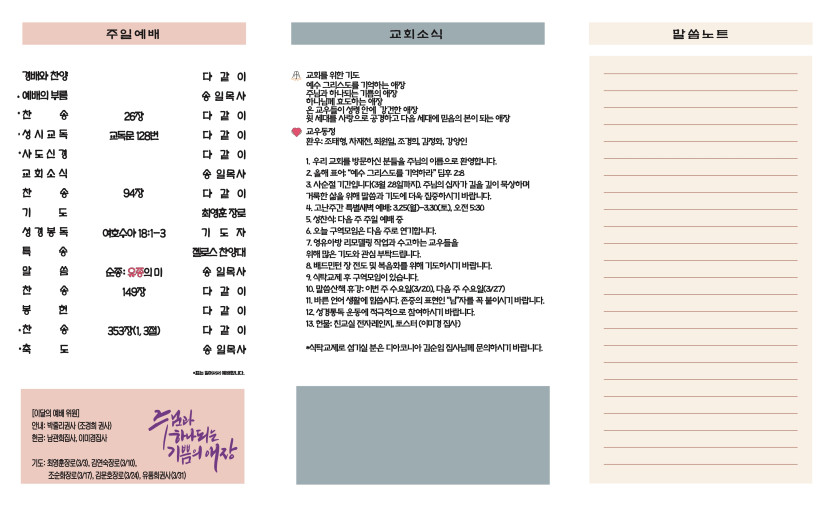 주일예배
경배와 찬양 다 같 이
• 예배의 부름 송 일 목사
• 찬 송 26장 다 같 이
• 성 시 교 독 교독문 128번 다 같 이
• 사 도 신 경 다 같 이
교 회 소 식 송 일 목사
찬 송 94장 다 같 이
기 도 최영훈 장로
성 경 봉 독 여호수아 18:1-3 기 도 자
특 송 젤로스 찬양대
말 씀 순종: 유종의 미 송 일 목사
찬 송 149장 다 같 이
봉 헌 다 같 이
• 찬 송 353장(1, 3절) 다 같 이
• 축 도 송 일 목사
[이달의 예배 위원]
안내: 박줄리권사 (조경희 권사)
헌금: 남관희집사, 이미경집사
기도: 최영훈장로(3/3), 김연숙장로(3/10),
조순화장로(3/17), 김문호장로(3/24), 유통희권사(3/31)
주님과
하나되는
기쁨의 애장
교회소식
교회를 위한 기도
예수 그리스도를 기억하는 애장
주님과 하나되는 기쁨의 애장
하나님께 효도하는 애장
온 교우들이 성령 안에 강건한 애장
윗 세대를 사랑으로 공경하고 다음 세대에 믿음의 본이 되는 애장
교우동정
환우: 조태형, 차재천, 최원일, 조경희, 김정화, 강양인
1. 우리 교회를 방문하신 분들을 주님의 이름으로 환영합니다.
2. 올해 표어: "예수 그리스도를 기억하라" 딤후 2:8
3. 사순절 기간입니다(3월 28일까지). 주님의 십자가 길을 깊이 묵상하며
거룩한 삶을 위해 말씀과 기도에 더욱 집중하시기 바랍니다.
4. 고난주간 특별새벽 예배: 3.25(월)-3.30(토), 오전 5:30
5. 성찬식: 다음 주 주일 예배 중
6. 오늘 구역모임은 다음 주로 연기합니다.
7. 영유아방 리모델링 작업과 수고하는 교우들을
위해 많은 기도와 관심 부탁드립니다.
8. 배드민턴 장 전도 및 복음화를 위해 기도하시기 바랍니다.
9. 식탁교제 후 구역모임이 있습니다.
10. 말씀산책 휴강: 이번 주 수요일(3/20), 다음 주 수요일(3/27)
11. 바른 언어 생활에 힘씁시다. 존중의 표현인 "님"자를 꼭 붙이시기 바랍니다.
12. 성경통독 운동에 적극적으로 참여하시기 바랍니다.
13. 헌물: 친교실 전자레인지, 토스터 (이미경 집사)
*식탁교제로 섬기실 분은 디아코니아 김순임 집사님께 문의하시기 바랍니다.
말씀노트